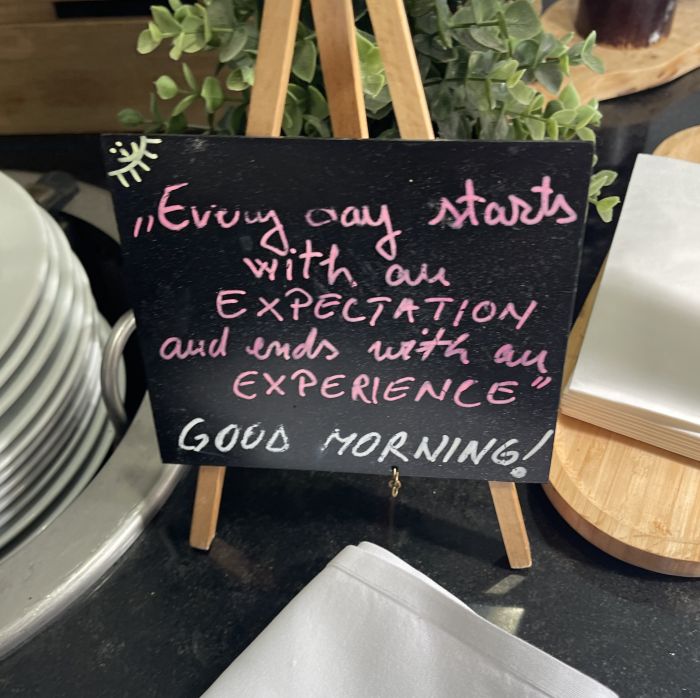 „Every day starts
with an
EXPECTATION
and ends with an
EXPERIENCE”
GOOD MORNING!